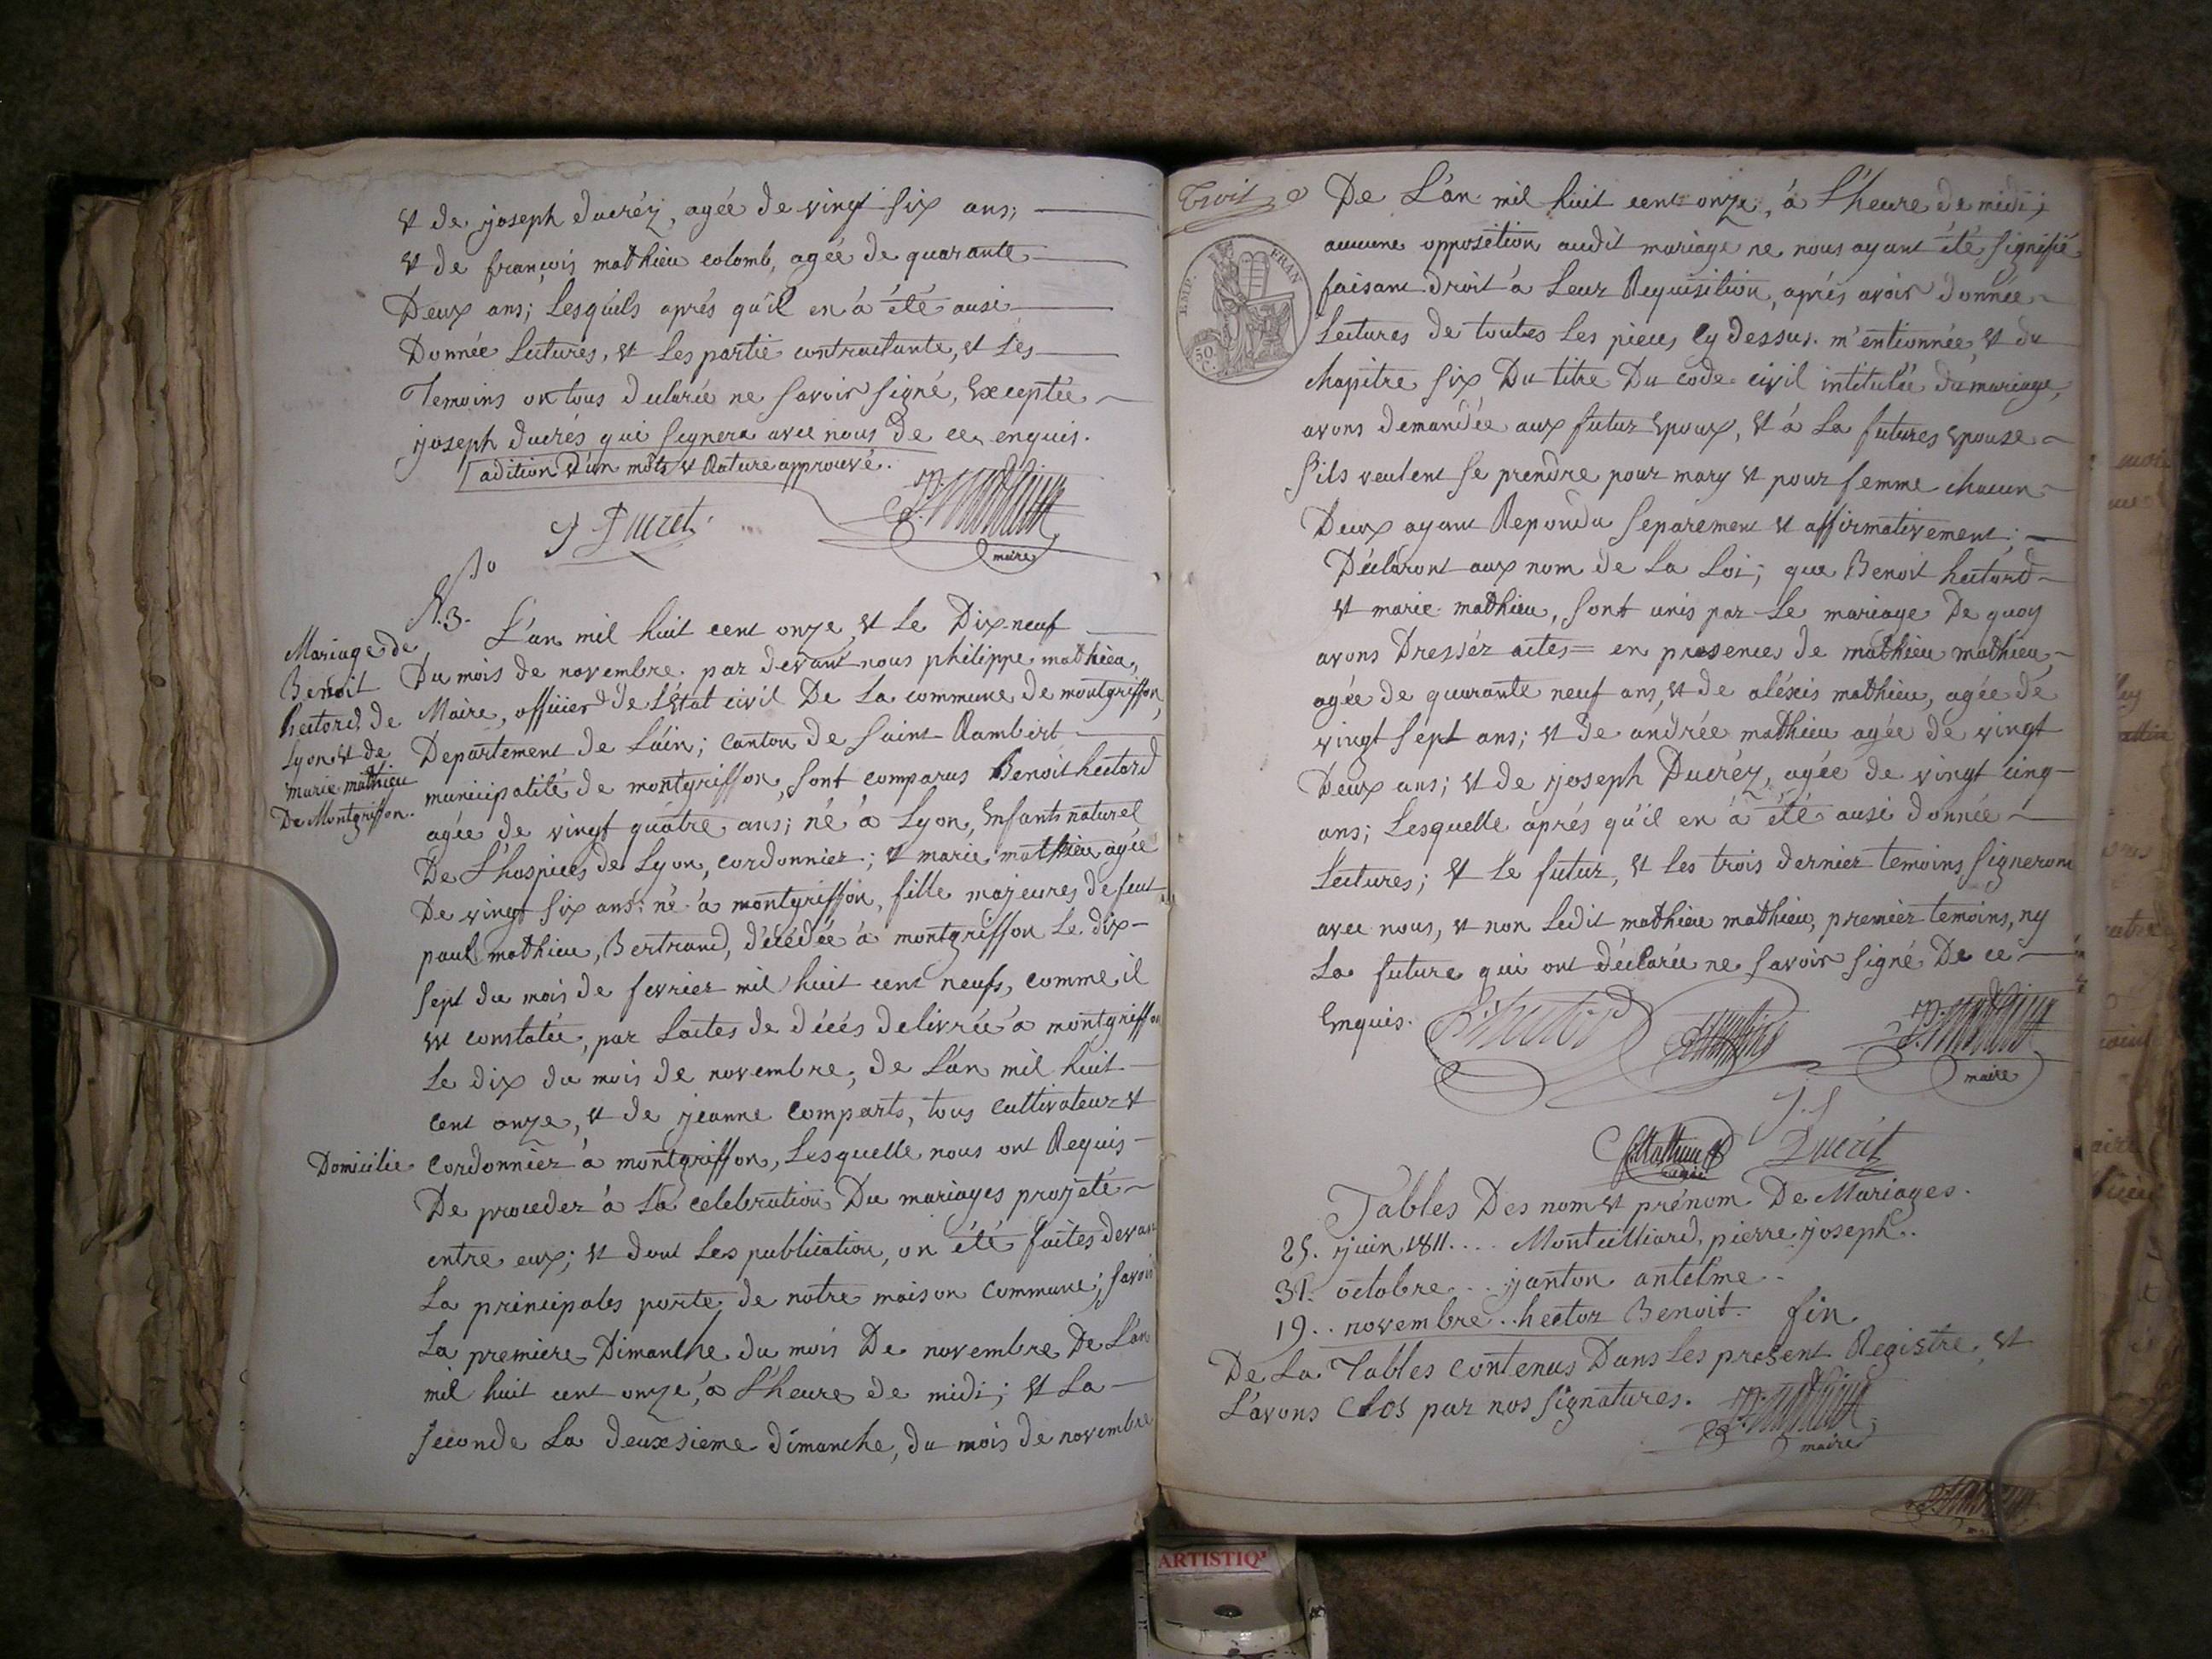 et de joseph ducréz, agée de vingt six ans;
et de françois mathieu colomb, agée de quarante
Deux ans; Lesquels aprés qu'il en à été ausi
Donnée Lectures, et Les partie contractante, et Les
Temoins on tous declarée ne Savoir Signé, Exceptée
joseph ducrés qui Segnera avec nous De ce enquis.
adition d'un mots et Rature approuvé.
J Ducret
P. Mathieu
maire
N.o 3.
Mariage de
Benoit
hectord, de
Lyon et de
marie mathieu
De Montgriffon.
L'an mil huit cent onze, et Le Dix-neuf
Du mois de novembre. par devant nous philippe mathieu,
Maire, officier de L'Etat civil De La commune de montgriffon,
Departement de L'ain; canton de Saint-Rambert
municipalité de montgriffon, Sont comparus Benoit hectord
agée de vingt quatre ans; né à Lyon, Enfants naturel
De L'hospices de Lyon, cordonnier; et marie mathieu agée
De vingt Six ans; né à montgriffon, fille majeures de feut
paul mathieu, Bertrand, décédée à montgriffon Le dix-
Sept du mois de fevrier mil huit cent neufs, comme il
est constatée, par L'actes de décés delivrée à montgriffon
Le dix du mois de novembre, de L'an mil huit
cent onze, et de jeanne Comparts, tous cultivateur et
Domicilie cordonnier à montgriffon, Lesquelle nous ont Requis
De proceder à La celebration Du mariages projeté
entre eux; et dont Les publication, on été faites devan
La principales porte, de notre maison Commune; Savoir
La premiere Dimanche du mois De novembre De L'an
mil huit cent onze, à L'heure de midi; et La
Seconde La deuxsieme dimanche, du mois de novembre
Troit
EMP. FRAN
50
C.
De L'an mil huit cent onze, à L'heure de midi;
aucune opposition audit mariage ne nous ayant été Signifié
faisant droit à Leur Requisition, aprés avoir donnée
Lectures de toutes Les pieces Cy dessus m'entionnée, et du
chapitre Six Du titre Du code civil intitulée du mariage,
avons demandée aux futur Epoux, et à La futures Epouse
S'ils veulent Se prendre pour mary et pour femme chacun
Deux ayant Repondu Separement et affirmativement;
Déclaront aux nom de La Loi; que Benoit hectord
et marie mathieu, Sont unis par Le mariage De quoy
avons Dressér actes = en presences de mathieu mathieu,
agée de quarante neuf ans, et de aléxis mathieu, agée de
vingt Sept ans; et de andrée mathieu agée de vingt
Deux ans; et de joseph Ducréz, agée de vingt cinq
ans; Lesquelle aprés qu'il en à été ausi donnée
Lectures; et Le futur, et Les trois dernier temoins Signeront
avec nous, et non Ledit mathieu mathieu, premiér temoins, ny
La future qui ont déclarée ne Savoir Signé De ce
Enquis.
P. Mathieu
maire
J. J
Ducrét
Tables Des nom et prénom De Mariages.
25. juin 1811.... Monteilliard, pierre joseph.
31. octobre... janton antelme.
19.. novembre.. hector Benoit. fin
De La Tables contenus Dans Les present Registre, et
L'avons Clos par nos Signatures.
P. Mathieu
maire
ARTISTIQ